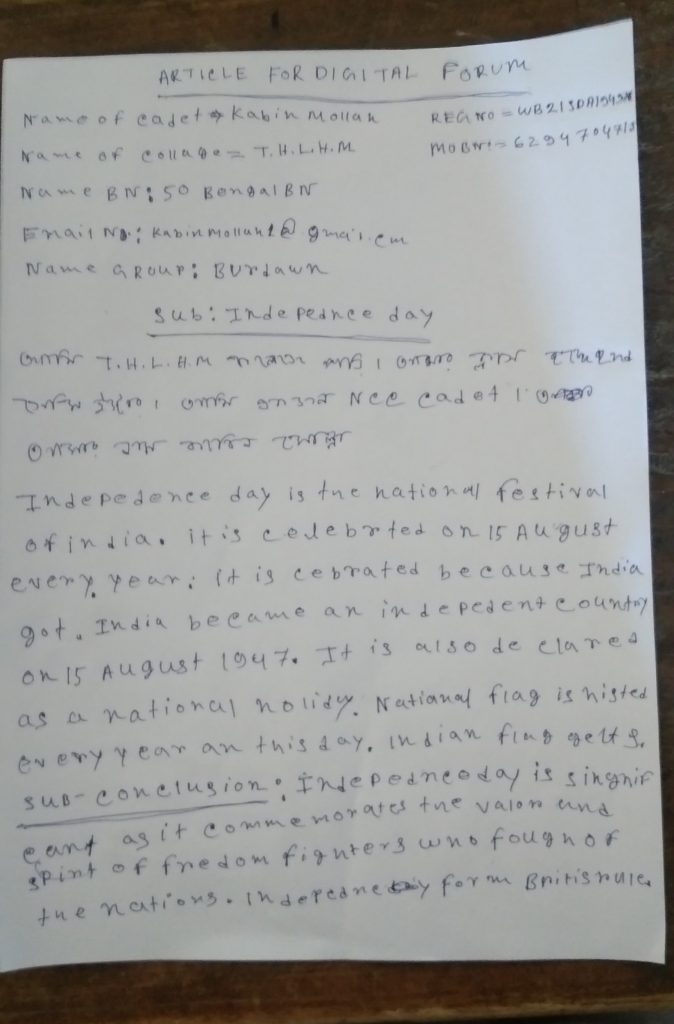 ARTICLE FOR DIGITAL FORUM
Name of cadet Kabin Mollah
REG NO = WB21SDA
Name of collage = T.H.L.H.M
MOB No = 629470471
Name BN: 50 Bengal BN
Email No: Kabinmollah1@gmai.cm
Name GROUP: Burdawn
Sub: Indepednce day
আমি T.H.L.H.M কলেজে পড়ি। আমার ক্লাস 2nd
আমি একজন NCC cadet।
আমার নাম কাবিন মোল্লা
Indepedence day is the national festival
of india. it is celebrted on 15 August
every year. it is cebrated because India
got. India became an indepedent country
on 15 August 1947. It is also declared
as a national holidy. National flag is histed
every year an this day. Indian flag
sub-conclusion: Indepednceday is singnif
cant as it commemorates the valor and
spirit of fredom fighters who fough of
the nations. Indepedne form British rule.